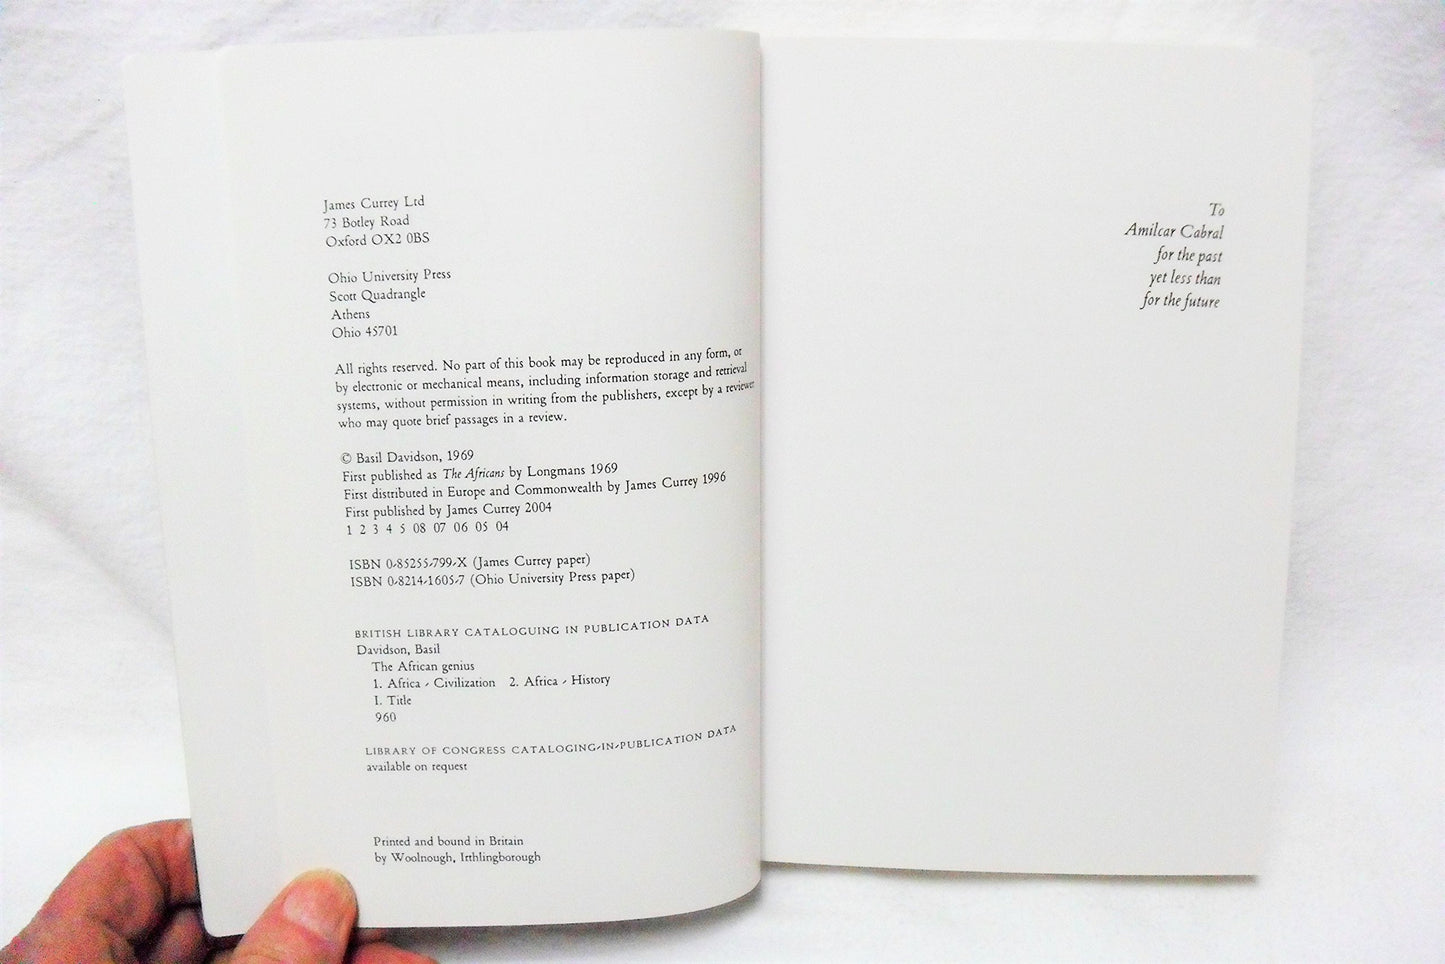 James Currey Ltd
73 Botley Road
Oxford OX2 0BS
Ohio University Press
Scott Quadrangle
Athens
Ohio 45701
All rights reserved. No part of this book may be reproduced in any form, or
by electronic or mechanical means, including information storage and retrieval
systems, without permission in writing from the publishers, except by a reviewer
who may quote brief passages in a review.
© Basil Davidson, 1969
First published as The Africans by Longmans 1969
First distributed in Europe and Commonwealth by James Currey 1996
First published by James Currey 2004
1 2 3 4 5 08 07 06 05 04
ISBN 0-85255-799-X (James Currey paper)
ISBN 0-8214-1605-7 (Ohio University Press paper)
BRITISH LIBRARY CATALOGUING IN PUBLICATION DATA
Davidson, Basil
The African genius
1. Africa - Civilization 2. Africa - History
I. Title
960
LIBRARY OF CONGRESS CATALOGING-IN-PUBLICATION DATA
available on request
Printed and bound in Britain
by Woolnough, Irthlingborough
To
Amilcar Cabral
for the past
yet less than
for the future